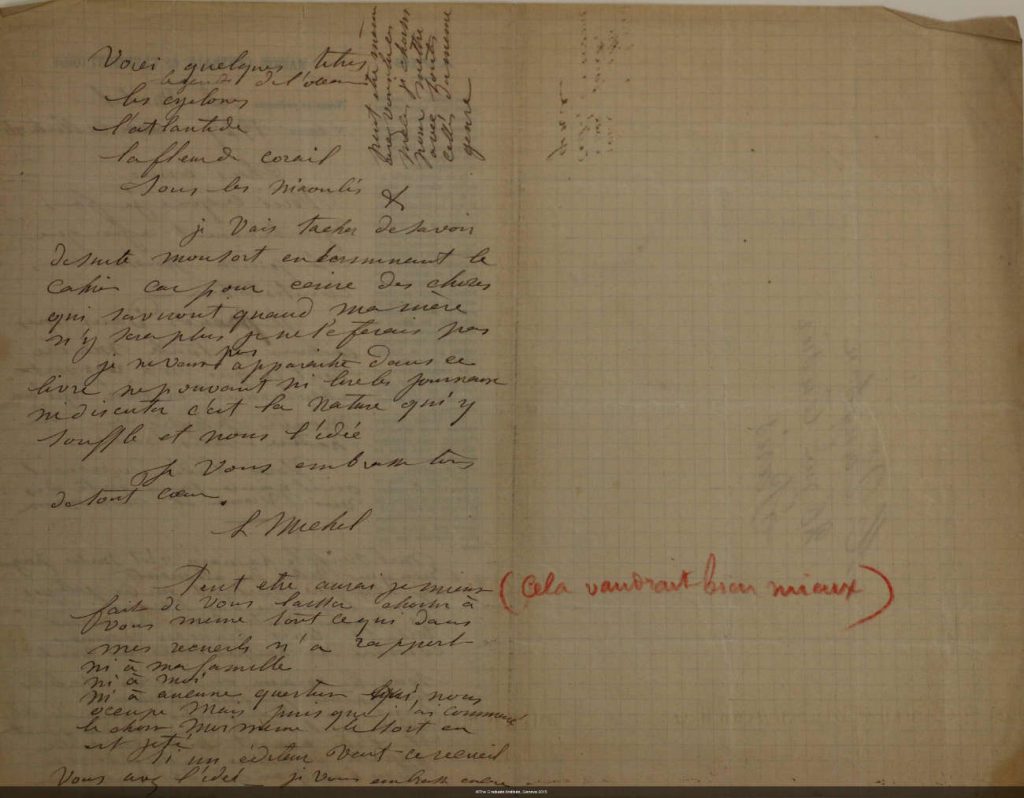 Voici quelques titres
légende de l'océan
les cyclones
l'atlantide
la fleur de corail
sous les niaoulis
&
je vais tacher de savoir
de suite mon sort en le
cahier car pour écrire des choses
qui quand ma mère
n'y sera plus je ne le ferais pas
je ne veux pas apparaitre dans ce
livre ne pouvant ni lire les journaux
ni discuter c'est la nature qui y
souffle et nous l'idée
Je vous embrasse tous
de tout cœur.
L. Michel
Peut etre aurai je mieux
(cela vaudrait bien mieux)
fait de vous laisser choisir à
vous meme tout ce qui dans
mes recueils n'a rapport
ni à ma famille
ni à moi
ni à aucune question qui nous
occupe mais puis que j'ai commencé
le choix moi meme le sort en
est jeté
Si un éditeur veut ce recueil
vous avez l'idée je vous embrasse encore
peut etre même
avez vous
je cherche
pour mettre
avec toutes
celles du meme
genre
©The Graduate Institute, Geneva 2015